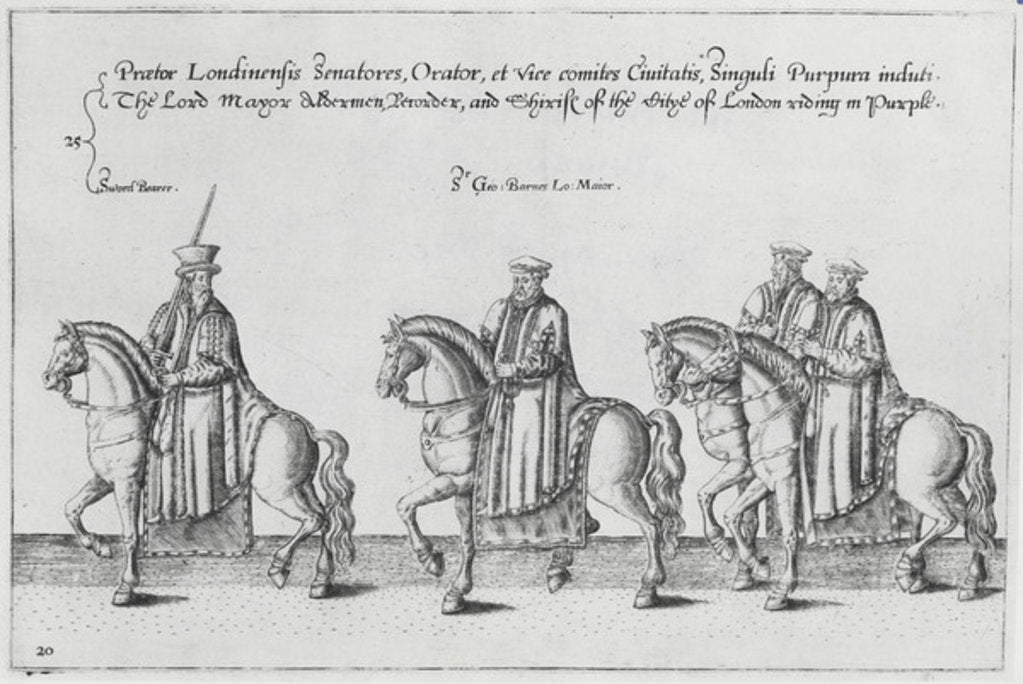 Prætor Londinensis Senatores, Orator, et Vice comites Ciuitatis, Singuli Purpura induti.
The Lord Mayor Aldermen, Recorder, and Shirifs of the Citye of London riding in Purple.
25
Sword Bearer.
Sr Geo: Barnes Lo: Maior.
20